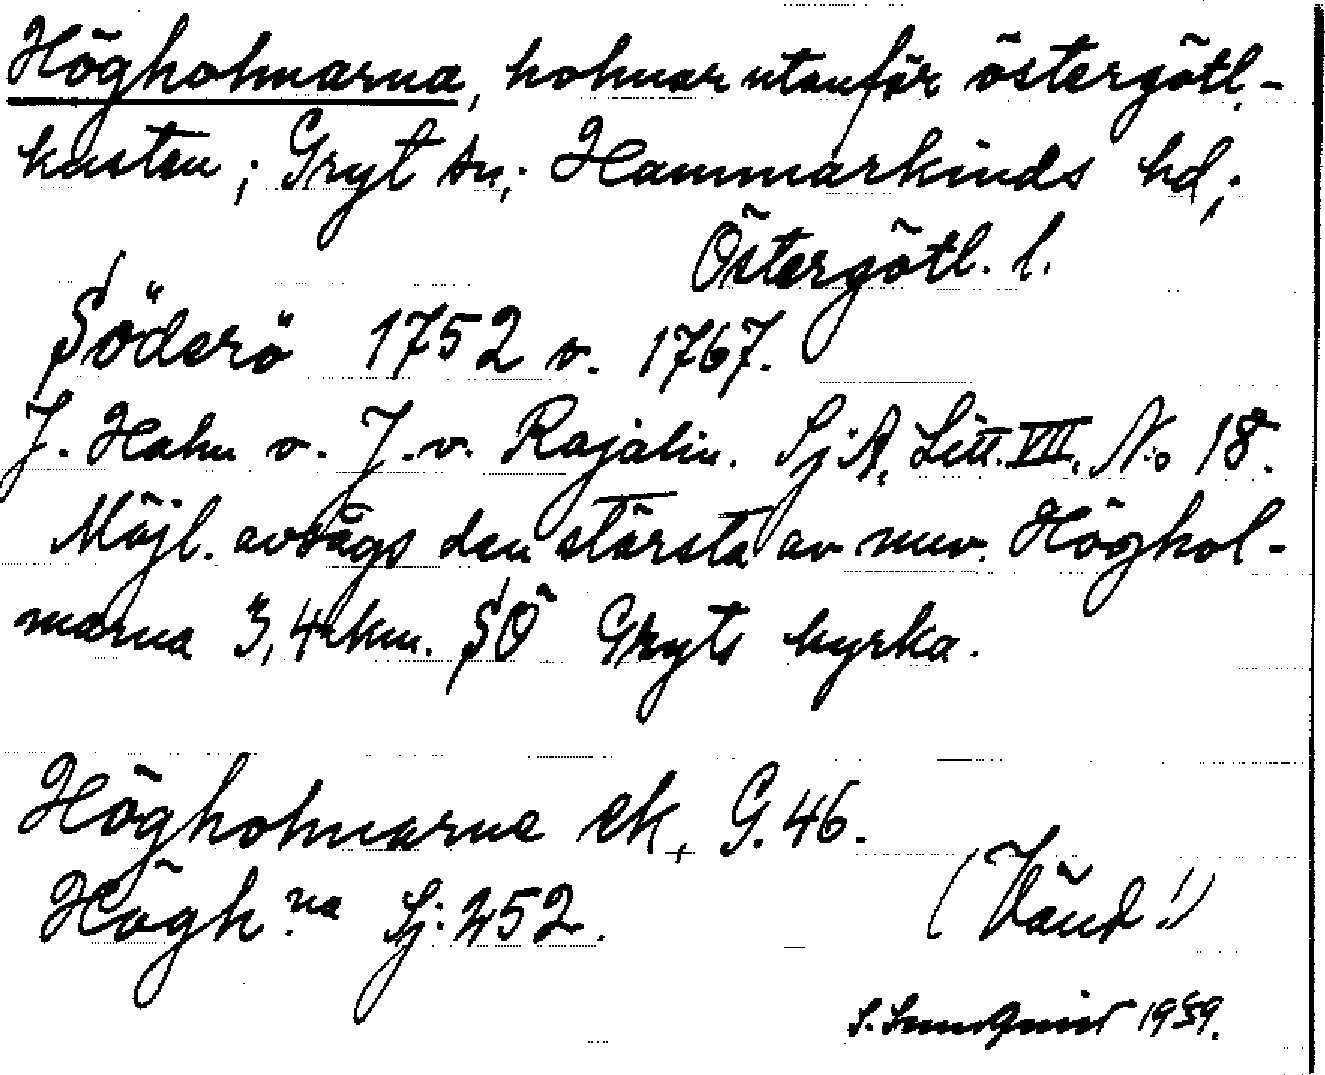 Högholmarna, holmar utanför östergötl.-
kusten; Gryt sn; Hammarkinds hd;
Östergötl. l.
Söderö 1752 o. 1767.
J. Hahn o. J. v. Rajalin. SjA, Litt. VII, No 18.
Möjl. avsågs den största av nuv. Höghol-
marna 3,4 km. SÖ Gryts kyrka.
Högholmarna ek. G. 46.
Högh:na Sj: 452.
(Vänd!)
S. 1959.